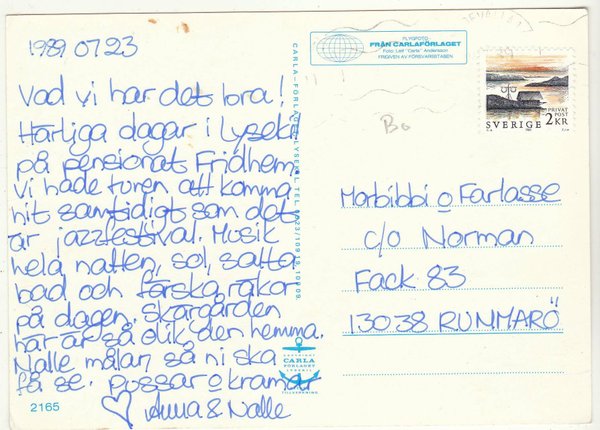 1989 07 23
Vad vi har det bra!
Härliga dagar i Lysekil
på pensionat Fridhem,
vi hade turen att komma
hit samtidigt som det
är jazzfestival. Musik
hela natten, sol, salta
bad och färska räkor
på dagen. Skärgården
här är så olik den hemma.
Nalle målar, så ni ska
få se. pussar o kramar
♡ Anna & Nalle
2165
CARLA-FÖRLAGET, LYSEKIL, TEL. 0523/109 19, 100 09.
FLYGFOTO
FRÅN CARLAFÖRLAGET
Foto: Leif "Carla" Andersson
FRIGIVEN AV FÖRSVARSSTABEN
COPYRIGHT
CARLA
FÖRLAGET
LYSEKIL
TILLVERKNING
B6
PRIVAT
POST
SVERIGE 2KR
Morbibbi o Farlasse
c/o Norman
Fack 83
13038 RUNMARÖ